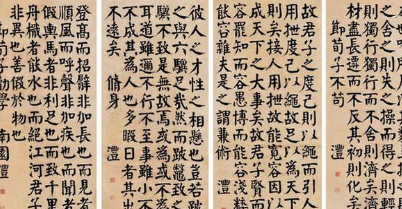 之舍之則失之操而得之則輕
則獨行獨行而不舍則濟矣濟而
材盡長遷而不反其初則化矣
節荀子不苟 澧
故君子之度己則以繩而引人
用抴度己以繩故足以為天下法
則矣接人用抴故能寬容因以
成天下之大事矣故君子賢而能
容罷知而能容愚博而能容淺粹而
能容雜夫是之謂兼術 澧
彼人之才性之相懸也豈若跛鱉
之與六驥足哉然而跛鱉致之六
驥不致是無他故焉或為之或不為
耳道雖邇不行不至事雖小不為
不成其為人也多暇日者其出入
不遠矣 脩身 澧
登高而招臂非加長也而見者遠
順風而呼聲非加疾也而聞者彰
假輿馬者非利足也而致千里假
舟檝者非能水也而絕江河君子生
非異也善假於物也
節荀子勸學 南園澧